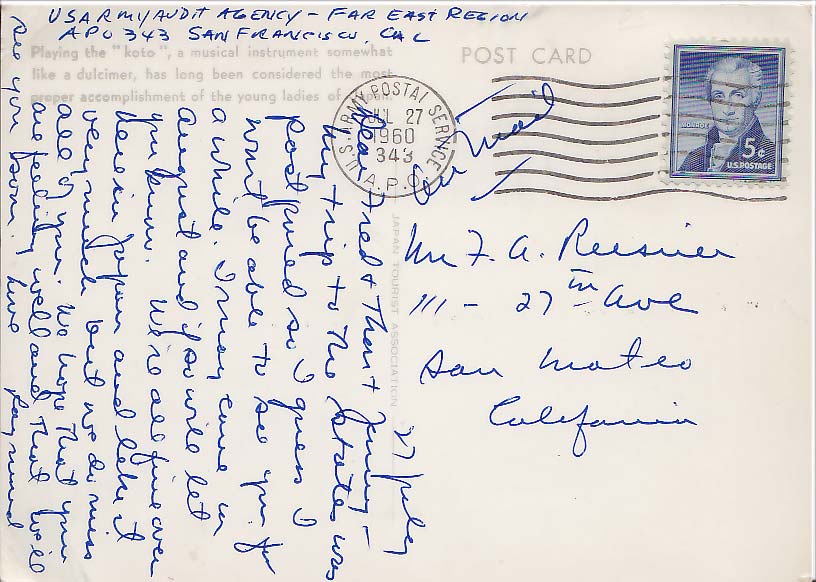 US ARMY AUDIT AGENCY - FAR EAST REGION
APO 343 SAN FRANCISCO, CAL
Playing the "koto", a musical instrument somewhat
like a dulcimer, has long been considered the most
proper accomplishment of the young ladies of Japan.
POST CARD
ARMY POSTAL SERVICE
JUL 27
1960
343
U.S. A.P.O.
MONROE
5¢
U.S. POSTAGE
Air Mail
Mr F. A. Reesnier
111 - 27th Ave
San Mateo
California
JAPAN TOURIST ASSOCIATION
27 July
Dear Fred & & Jimmy -
My trip to the states was
postponed so I guess I
won't be able to see you for
a while. I may come in
August and if so will let
you know. We're all fine over
here in Japan and like it
very much but we do miss
all of you. We hope that you
are feeling well and that we'll
see you soon. Love Raymond